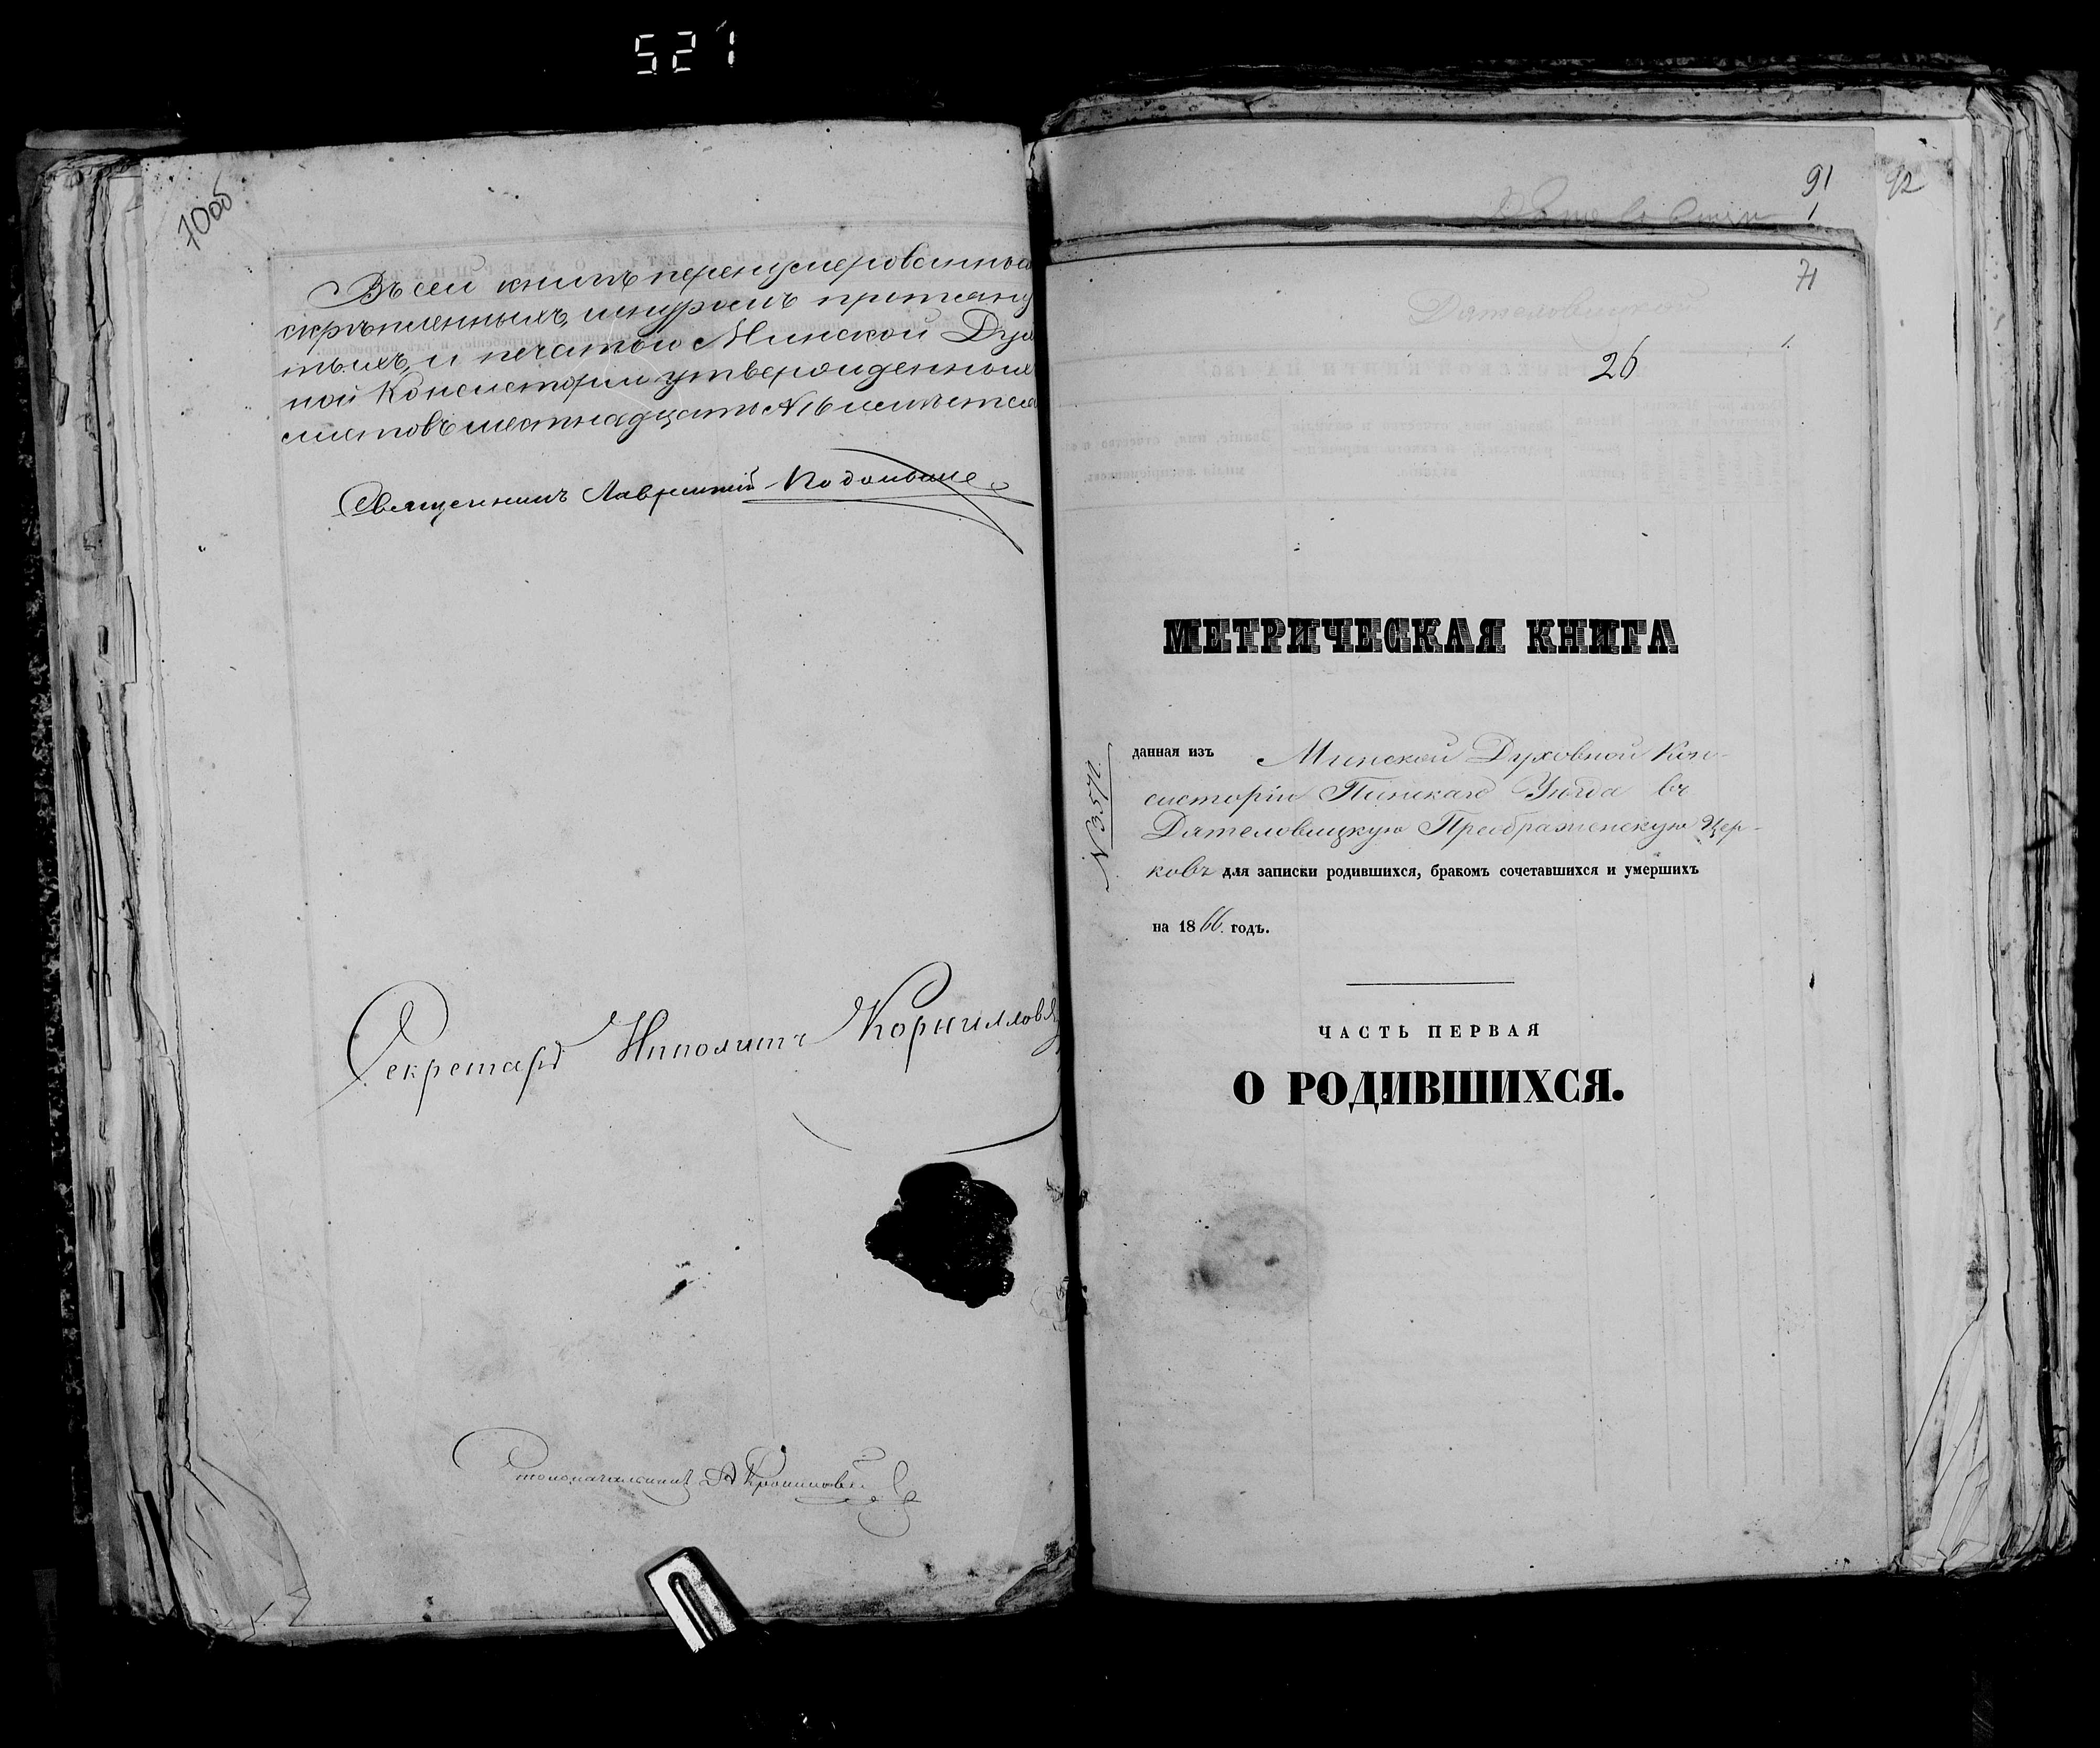 527
70об
Въ сей книгѣ перенумерованны
скрѣпленныхъ, шнуромъ протяну
тыхъ, и печатью Минской Духо
ной Консисторіи утвержденныхъ
листовъ шестнадцать №16 имѣется
Священникъ Лаврентій
Секретарь Ипполитъ Корнилловъ
Столоначальникъ
91
92
1
71
Дятеловицкой
26
МЕТРИЧЕСКАЯ КНИГА
№ 3571.
данная изъ Минской Духовной Кон-
систоріи Пинскаго Уѣзда въ
Дятеловицкую Преображенскую Цер-
ковь для записки родившихся, бракомъ сочетавшихся и умершихъ
на 1866. годъ.
ЧАСТЬ ПЕРВАЯ
О РОДИВШИХСЯ.